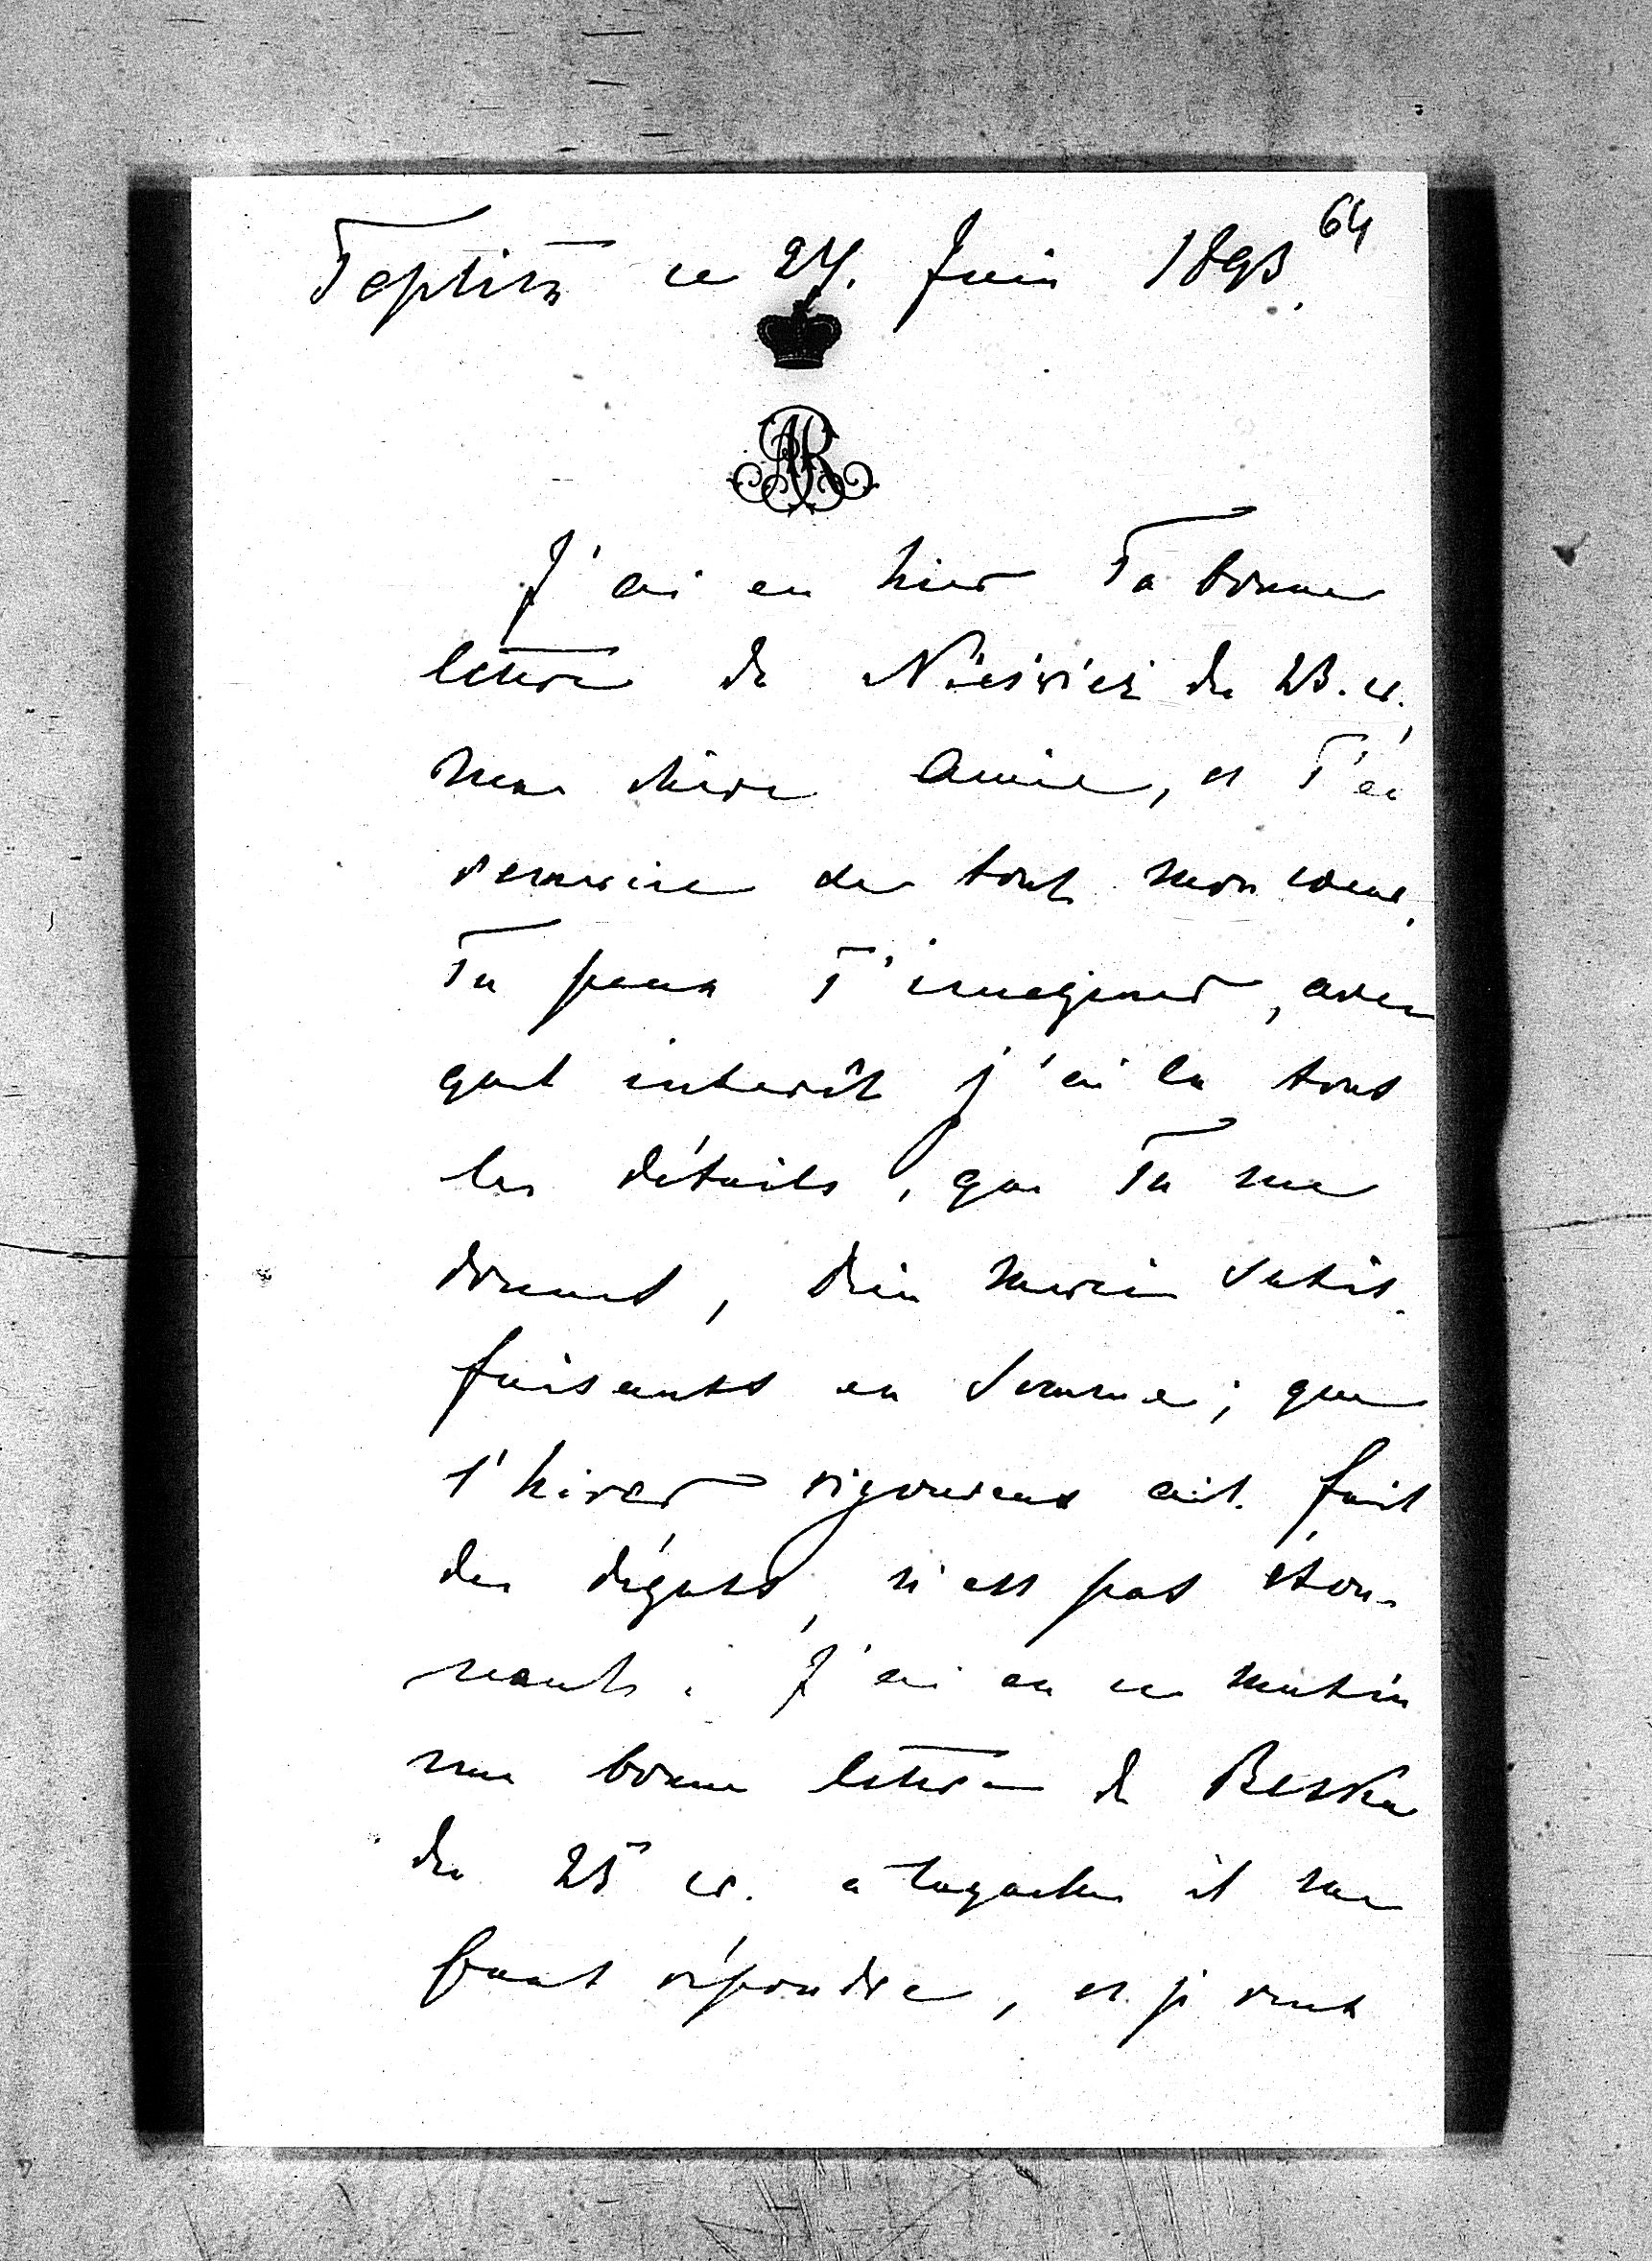 Teplitz ce 27. Juin 1893.
64
AR
J'ai eu hier Ta bonne
lettre de Nieśwież du 23. cr.,
ma chère Amie, et T'en
remercie de tout mon coeur.
Tu peux T'imaginer, avec
quel intérêt j'ai lu tous
les détails, que Tu me
donnes, Dieu merci satis-
faisants en somme; que
l'hiver rigoureux ait fait
des dégats, n'est pas éton-
nant. J'ai eu ce matin
une bonne lettre de
du 25 cr. a laquelle il me
faut répondre, et je veux